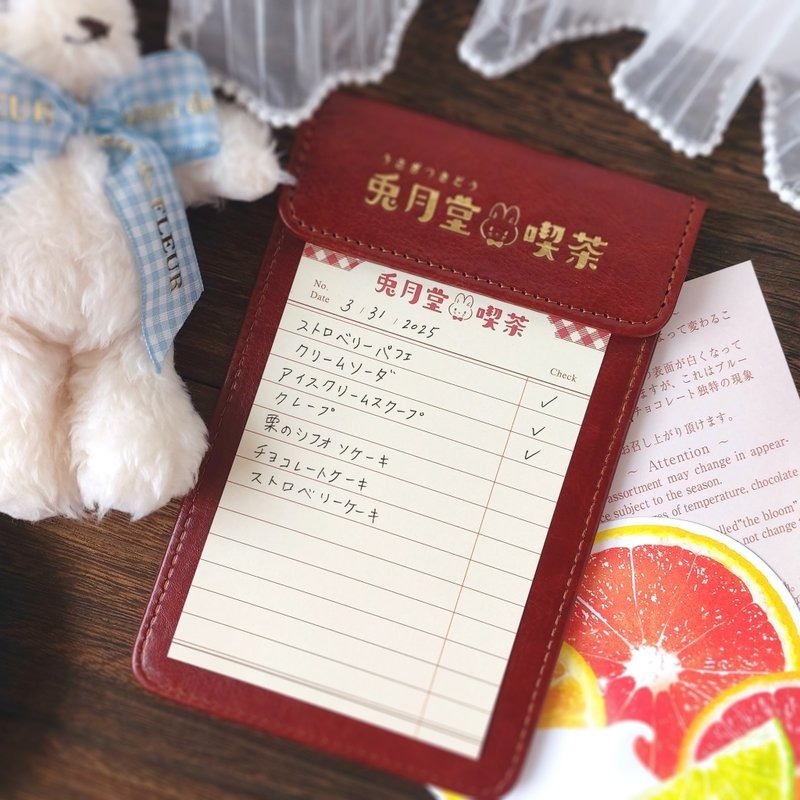 FLEUR
FLEUR
うさぎつきどう
兎月堂 喫茶
兎月堂 喫茶
No.
Date 3 / 31 / 2025
Check
ストロベリーパフェ
クリームソーダ ✓
アイスクリームスクープ ✓
クレープ ✓
栗のシフォンケーキ
チョコレートケーキ
ストロベリーケーキ
って変わるこ
表面が白くなって
ますが、これはブルー
チョコレート独特の現象
お召し上がり頂けます。
~ Attention ~
assortment may change in appear-
subject to the season.
of temperature, chocolate
"the bloom"
not change